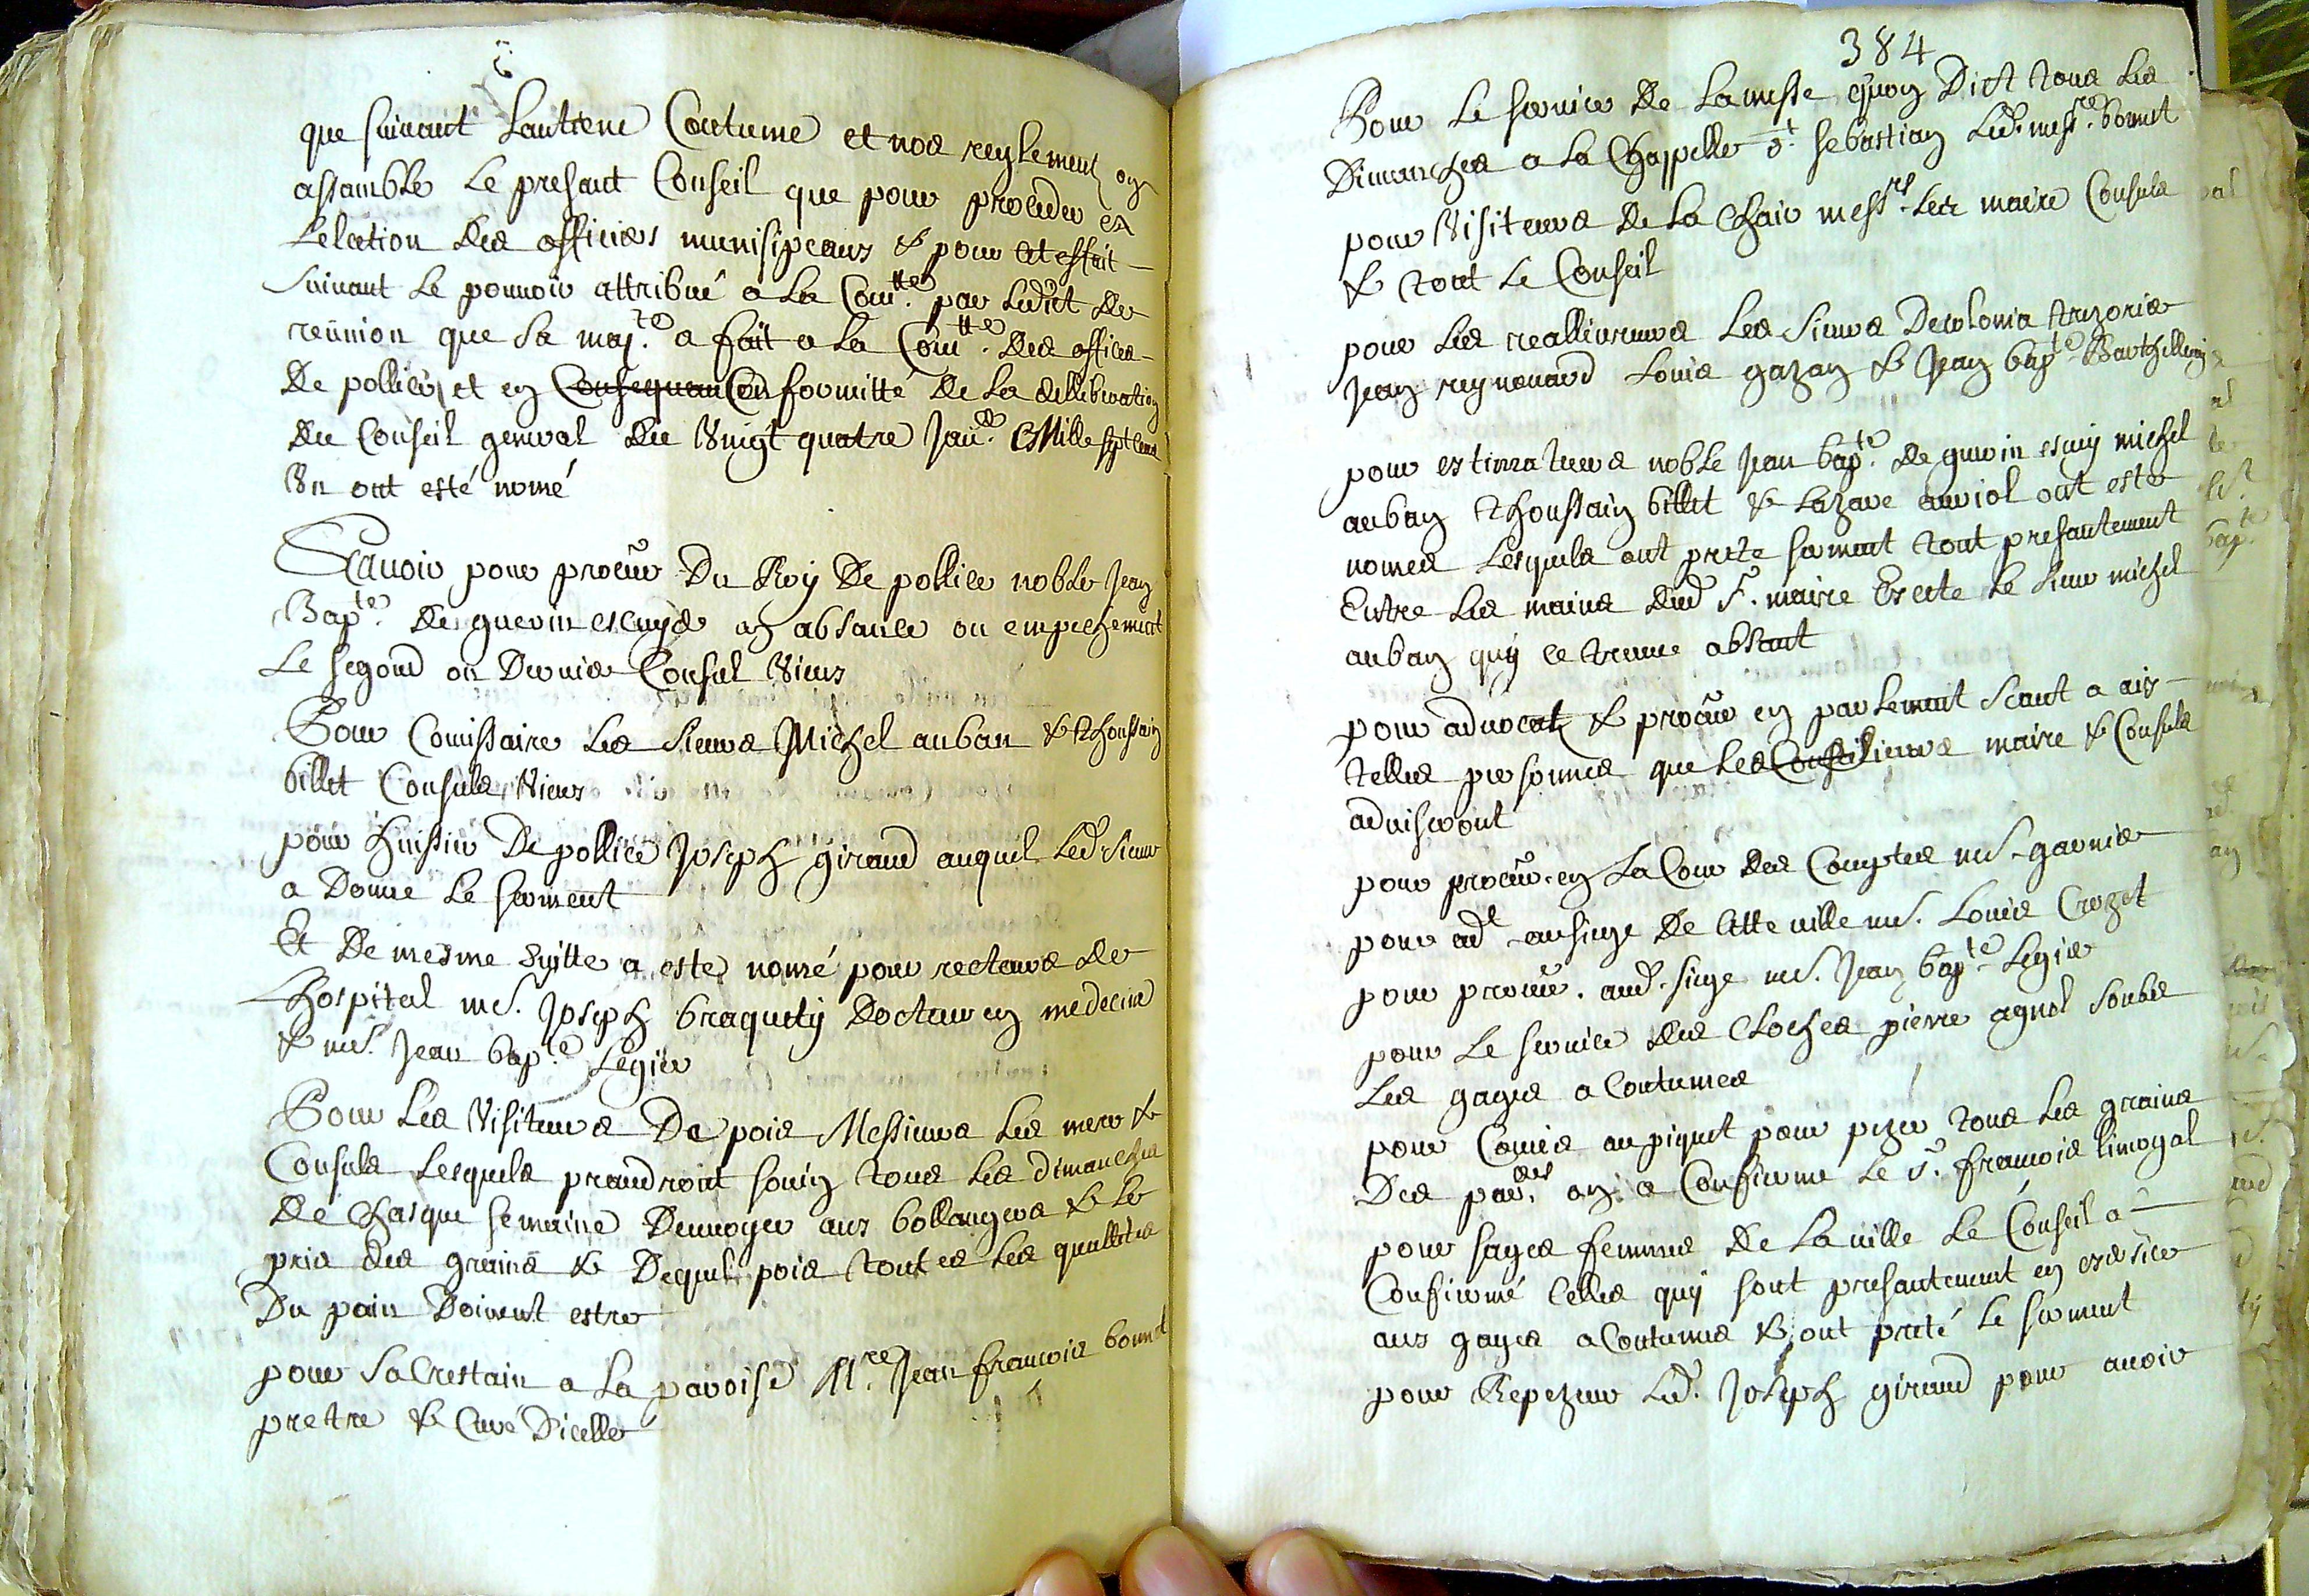 que suivant lantiene Coutume et nos reglement on
assamble le presant Conseil que pour proceder a
Lelection des officiers munisipeaux & pour cet effait
suivant le pouvoir attribué a la Com.tte par ledit de
reünion que Sa maj.te a fait a la Com.tte des offices
De pollice, et en Consequan Conformitté de la delliberation
du Conseil general du Vingt quatre Jan.er Mille sept cens
Un ont esté nomé
Scavoir pour procur Du Roy De pollice noble Jean
Bap.te De guerin escuyer an absance ou empechemant
Le segond ou Dernier Consul Vieux
Pour Comissaire les sieurs Michel auban & Thoussain
billet Consuls Vieux
pour huissier De pollice Joseph giraud auquel led. sieur
a Donne le serment
Et De mesme suitte a este nomé pour recteurs de
Lhospital me. Joseph braquety Docteur en medecine
& me. Jean bap.te Legier
Pour Les Visiteurs De pois Messieurs les mere &
Consuls Lesquels prandront souin tous les dimanches
de chasque semaine Denvoyer aux bollangers & le
pris des grains & Dequel pois toutes les quallites
Du pain Doivent estre
pour Sacrestain a la paroisse M.re Jean francois bonnet
pretre & Curé Dicelle
384
Pour Le service De La messe quon Dict tous les
Dimanches a la Chappelle St. Sebastian Led. mess.re bonnet
pour Visiteurs De la Chair mess.rs les maire Consuls
& tout le Conseil
pour les reallivreurs les sieurs Decolonia trezorier
Jean reynouard Louis gazan & Jean bap.te Barthellemy
pour estimateurs noble Jean bap.te de guerin escuy michel
auban Thoussain billet & Lazare auriol ont este
nomes Lesquels ont preste serment tout presantement
Entre les mains dud. Sr. maire Exepte le sieur michel
auban quy ce treuve absant
pour advocat & procur en parlemant seant a aix
telles personnes que les Conseil sieurs maire & Consuls
adviseront
pour procur. en La Cour des Comptes me. garnier
pour adt. au siege De cette ville me. Louis Crozet
pour procur. aud. siege me. Jean bap.te Legier
pour Le service des cloches pierre agnel soubs
Les gages acoutumes
pour Comis au piquet pour pezer tous les grains
Des par.ers on a Confirme le Sr. francois limogal
pour sages femmes De la ville le Conseil a
Confirmé celles quy sont presantement en exersice
aux gages acoutumes & ont preté le serment
pour Repezeur Led. Joseph giraud pour avoir